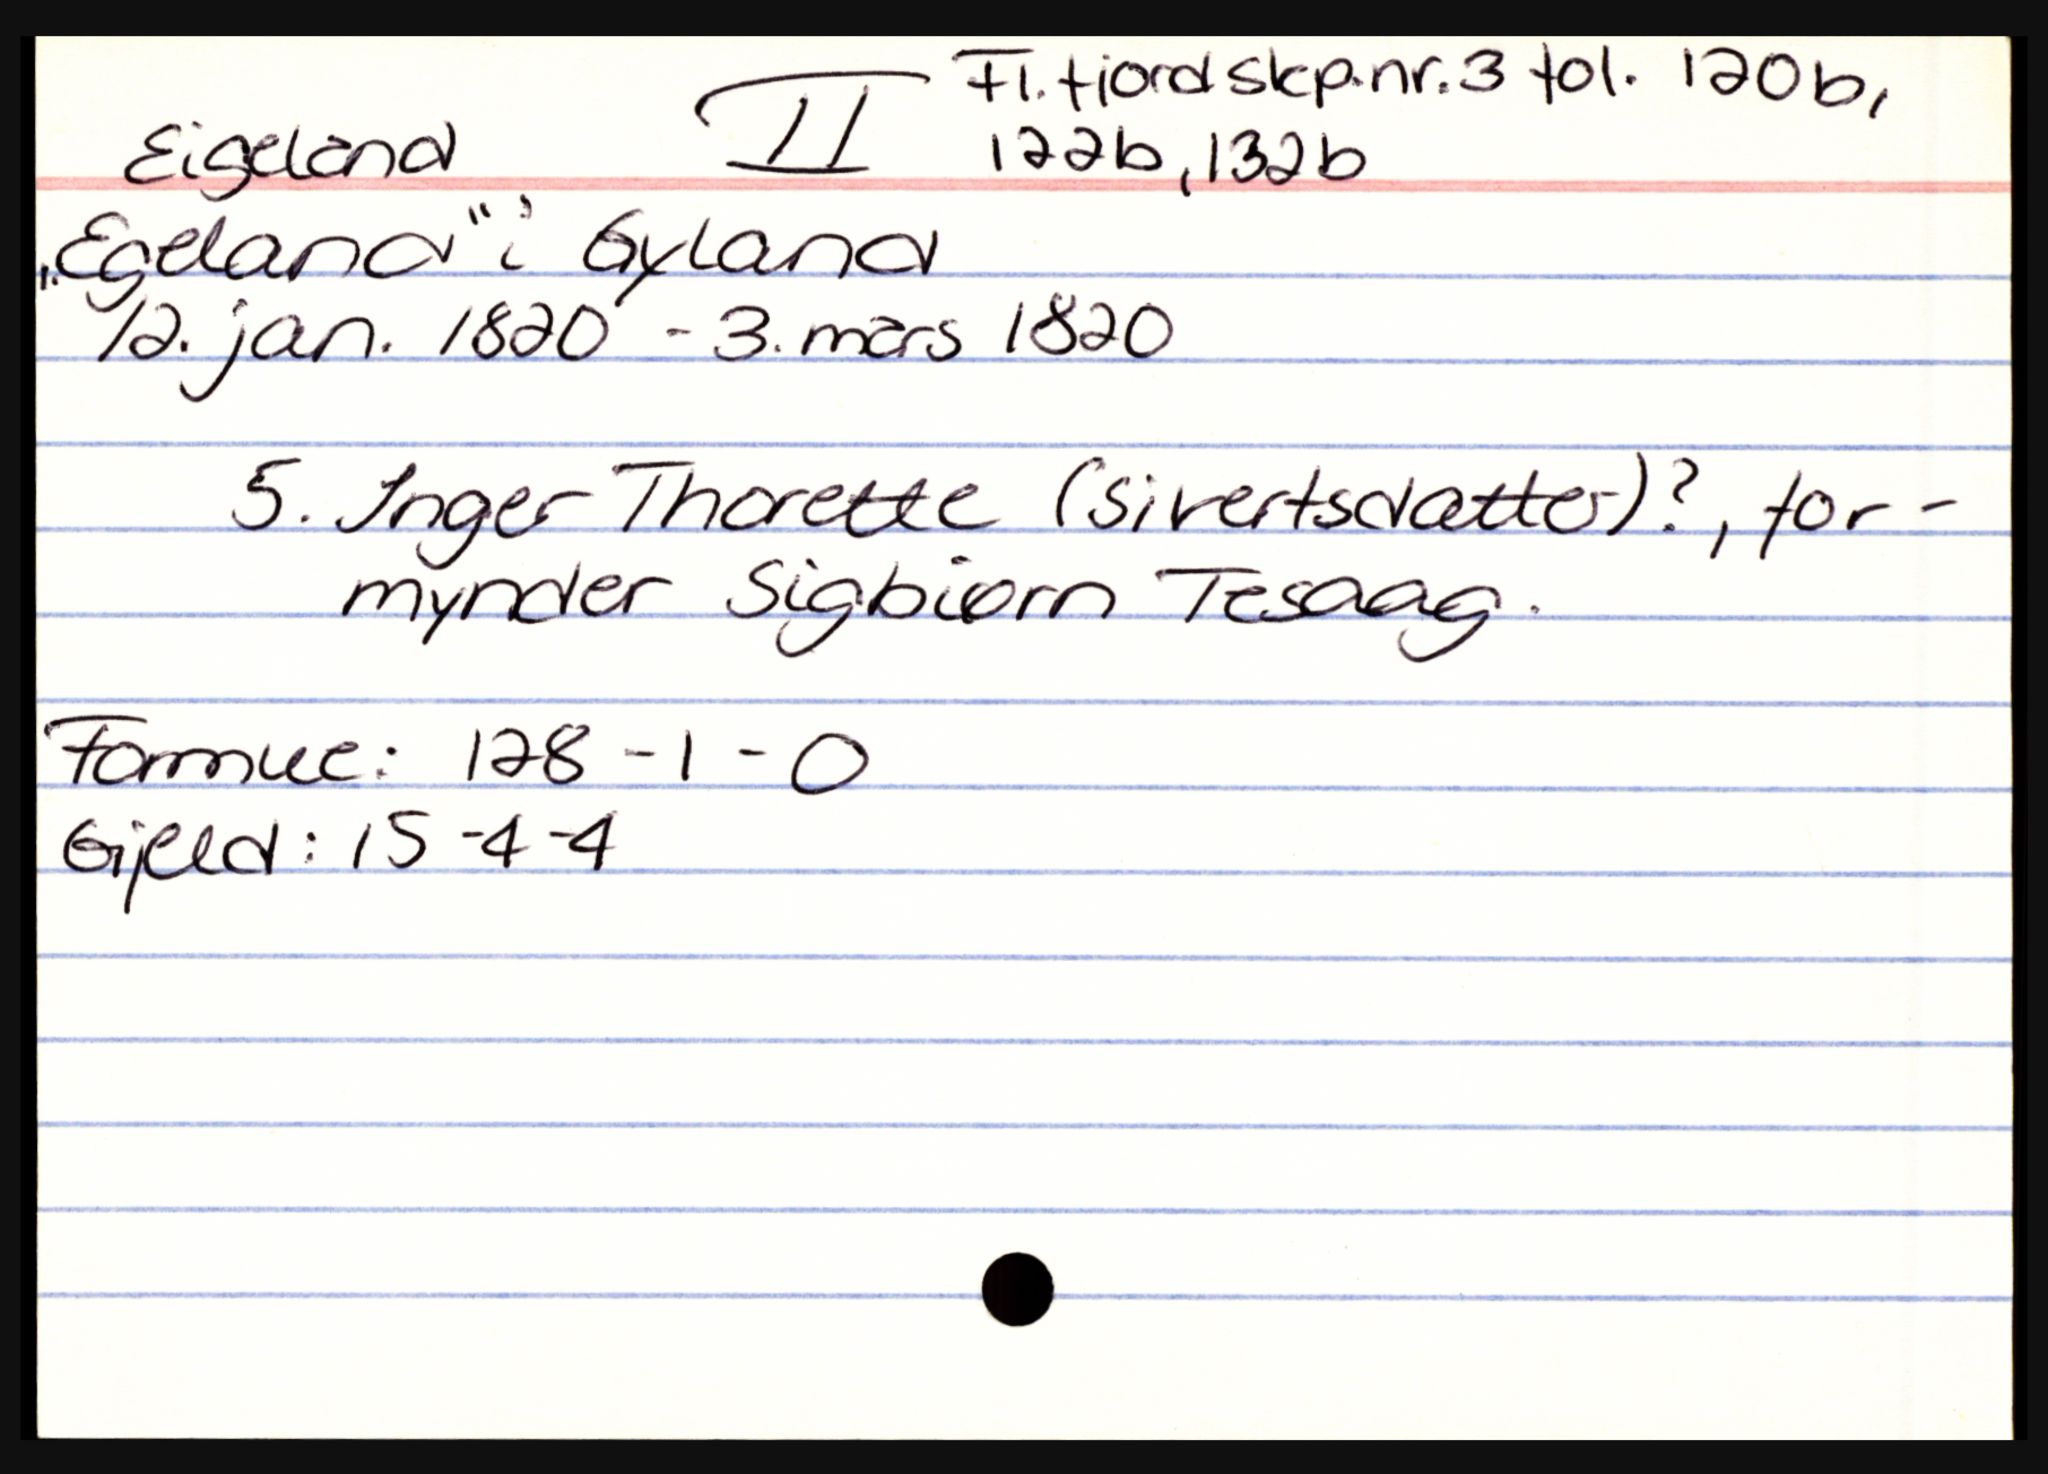 Eigeland II Fl. fjord skp.nr. 3 fol. 120b,
122b, 132b
„Egeland" i Gyland
12. jan. 1820 - 3. mars 1820
5. Inger Thorette (Sivertsdatter)?, for-
mynder Sigbiørn Tesaag.
Formue: 128 - 1 - 0
Gjeld: 15 - 4 - 4